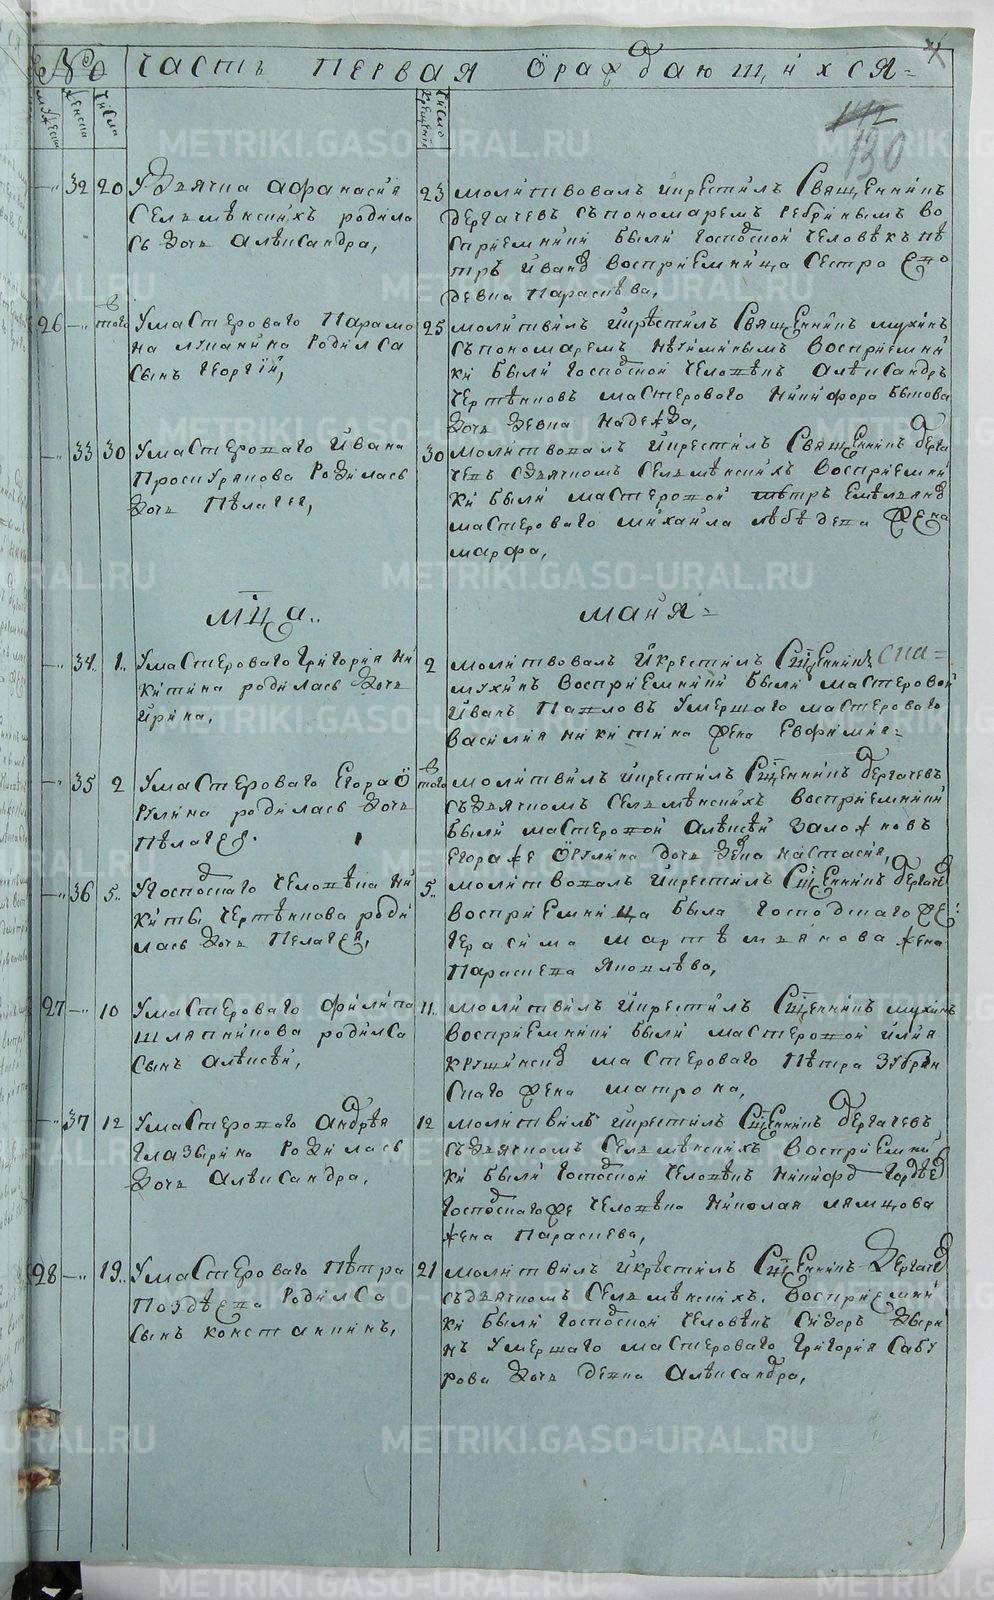 № ЧАСТЬ ПЕРВАЯ О РАЖДАЮЩИХСЯ
130
мужеска женска число
число крещения
32 20 У дьячка афанасия
селямѣнсихъ родила
сь дочь алѣксандра,
23 молитвовалъ и крестилъ Священникъ
дергачевъ съ пономаремъ ребринымъ во
сприемники были господской человѣкъ пѣ
тръ ивановъ восприемница сестра
девка параскѣва,
26 в того У мастероваго Парамо
на лупанина родилса
сынъ георгий,
25 молитвилъ и крѣстилъ Священникъ мухинъ
съ пономаремъ восприемни
ки были господской человѣкъ алѣксандръ
чертѣнковъ мастероваго никифора быкова
дочь девка надежда,
33 30 У мастероваго ивана
проскурякова родилась
дочь пѣлагея,
30 молитвовалъ и крестилъ Священникъ дерга
чевъ с дьячкомъ селямѣнсихъ восприемни
ки были мастеровой пѣтръ емѣльяновъ
мастероваго михаила лѣбѣдева жена
марфа,
мца.. майя
34 1.. У мастероваго григория ни
китина родилась дочь
ирина,
2 молитвовалъ и крестилъ Сщенникъ спа
мухинъ восприемники были мастеровой
иванъ павловъ умершаго мастероваго
василия никитина жена евфимия
35 2 У мастероваго Егора о
кулина родилась дочь
пѣлагея.
в того молитвилъ и крестилъ Сщенникъ дергачевъ
съ дьячкомъ селямѣнсихъ восприемники
были мастеровой алѣксѣй заложновъ
егора же окулина дочь девка настасия,
36 5.. У господскаго человѣка ни
киты чертѣнкова роди
лась дочь пелагея,
5.. молитвовалъ и крестилъ Сщенникъ дергачев
восприемница была господскаго че
герасима мартѣмьянова жена
параскева яковлѣва,
27 10 У мастероваго филипа
шляпникова родилса
сынъ алѣксѣй,
11.. молитвилъ и крестилъ Сщенникъ мухинъ
восприемники были мастеровой илия
крушинской мастероваго пѣтра зубрин
скаго жена матрона,
37 12 У мастероваго андрѣя
глазырина родилась
дочь алѣксандра,
12 молитвилъ и крестилъ Сщенникъ дергачевъ
съ дьячкомъ селямѣнсихъ восприемни
ки были господской человѣкъ никифоръ гордѣев
господскаго же человѣка николая лямцова
жена параскева,
28 19.. У мастероваго пѣтра
поздѣева родилса
сынъ константинъ,
21 молитвилъ и крѣстилъ Сщенникъ дергачев
съ дьячкомъ селямѣнсихъ. восприемни
ки были господской человѣкъ сидоръ звери
нъ умершаго мастероваго григория сабу
рова дочь девка алѣксандра,
METRIKI.GASO-URAL.RU